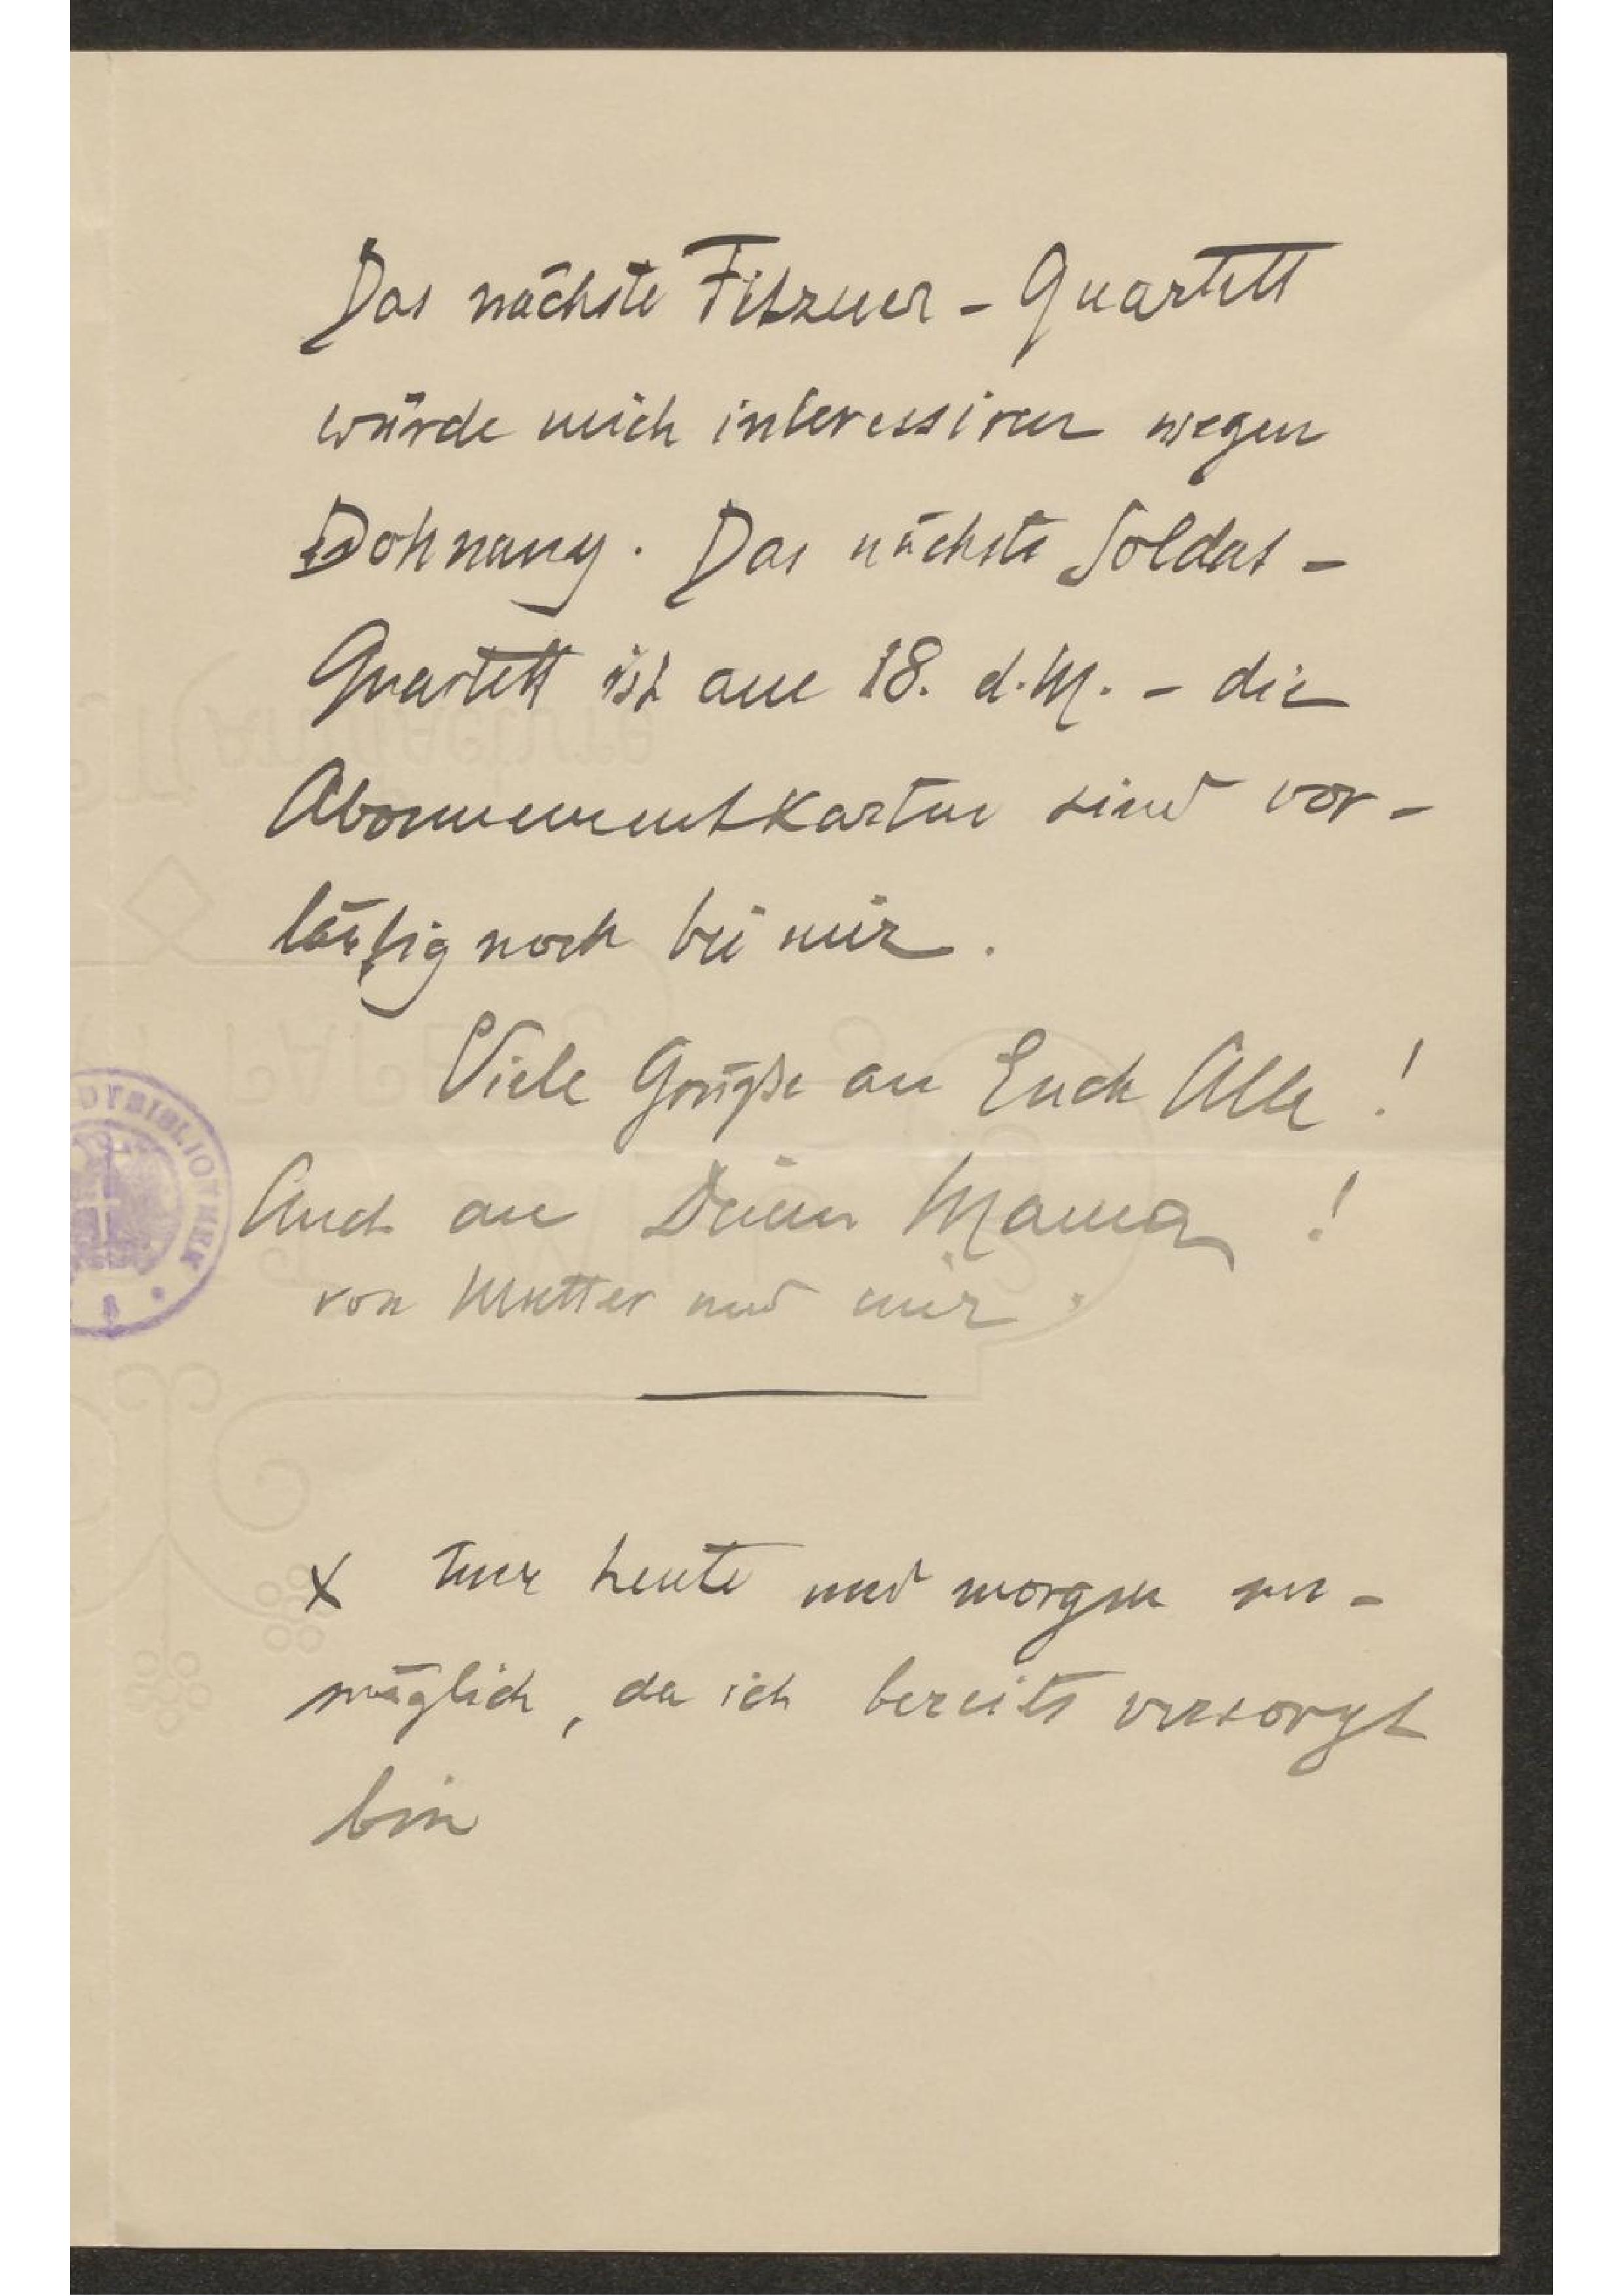 Das nächste Fitzner - Quartett
würde mich interessiren wegen
Dohnany. Das nächste Soldat -
Quartett ist am 18. d. M. - die
Abonnementkarten sind vor -
läufig noch bei mir.
Viele Grüße an Euch Alle !
Auch an Deine Mama !
von Mutter und mir .
x Nur heute und morgen un -
möglich, da ich bereits versorgt
bin